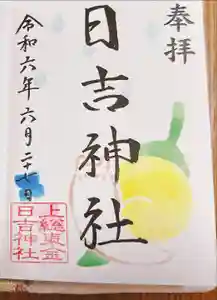 奉拝
日吉神社
令和六年六月二十七日
上総東金
日吉神社